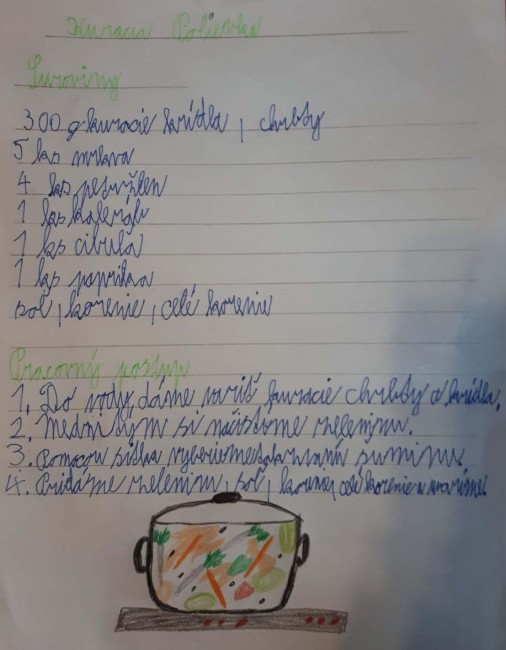 Kuracia Polievka
Suroviny
300 g kuracie krídla, chrbty
5 ks mrkva
4 ks petržlen
1 ks kaleráb
1 ks cibuľa
1 ks paprika
soľ, korenie, celé korenie
Pracovný postup
1. Do vody dáme variť kuracie chrbty a krídla.
2. Medzitým si načistíme zeleninu.
3. Pomocou sitka vyberieme
4. Pridáme zeleninu, soľ, korenie, celé korenie a varíme